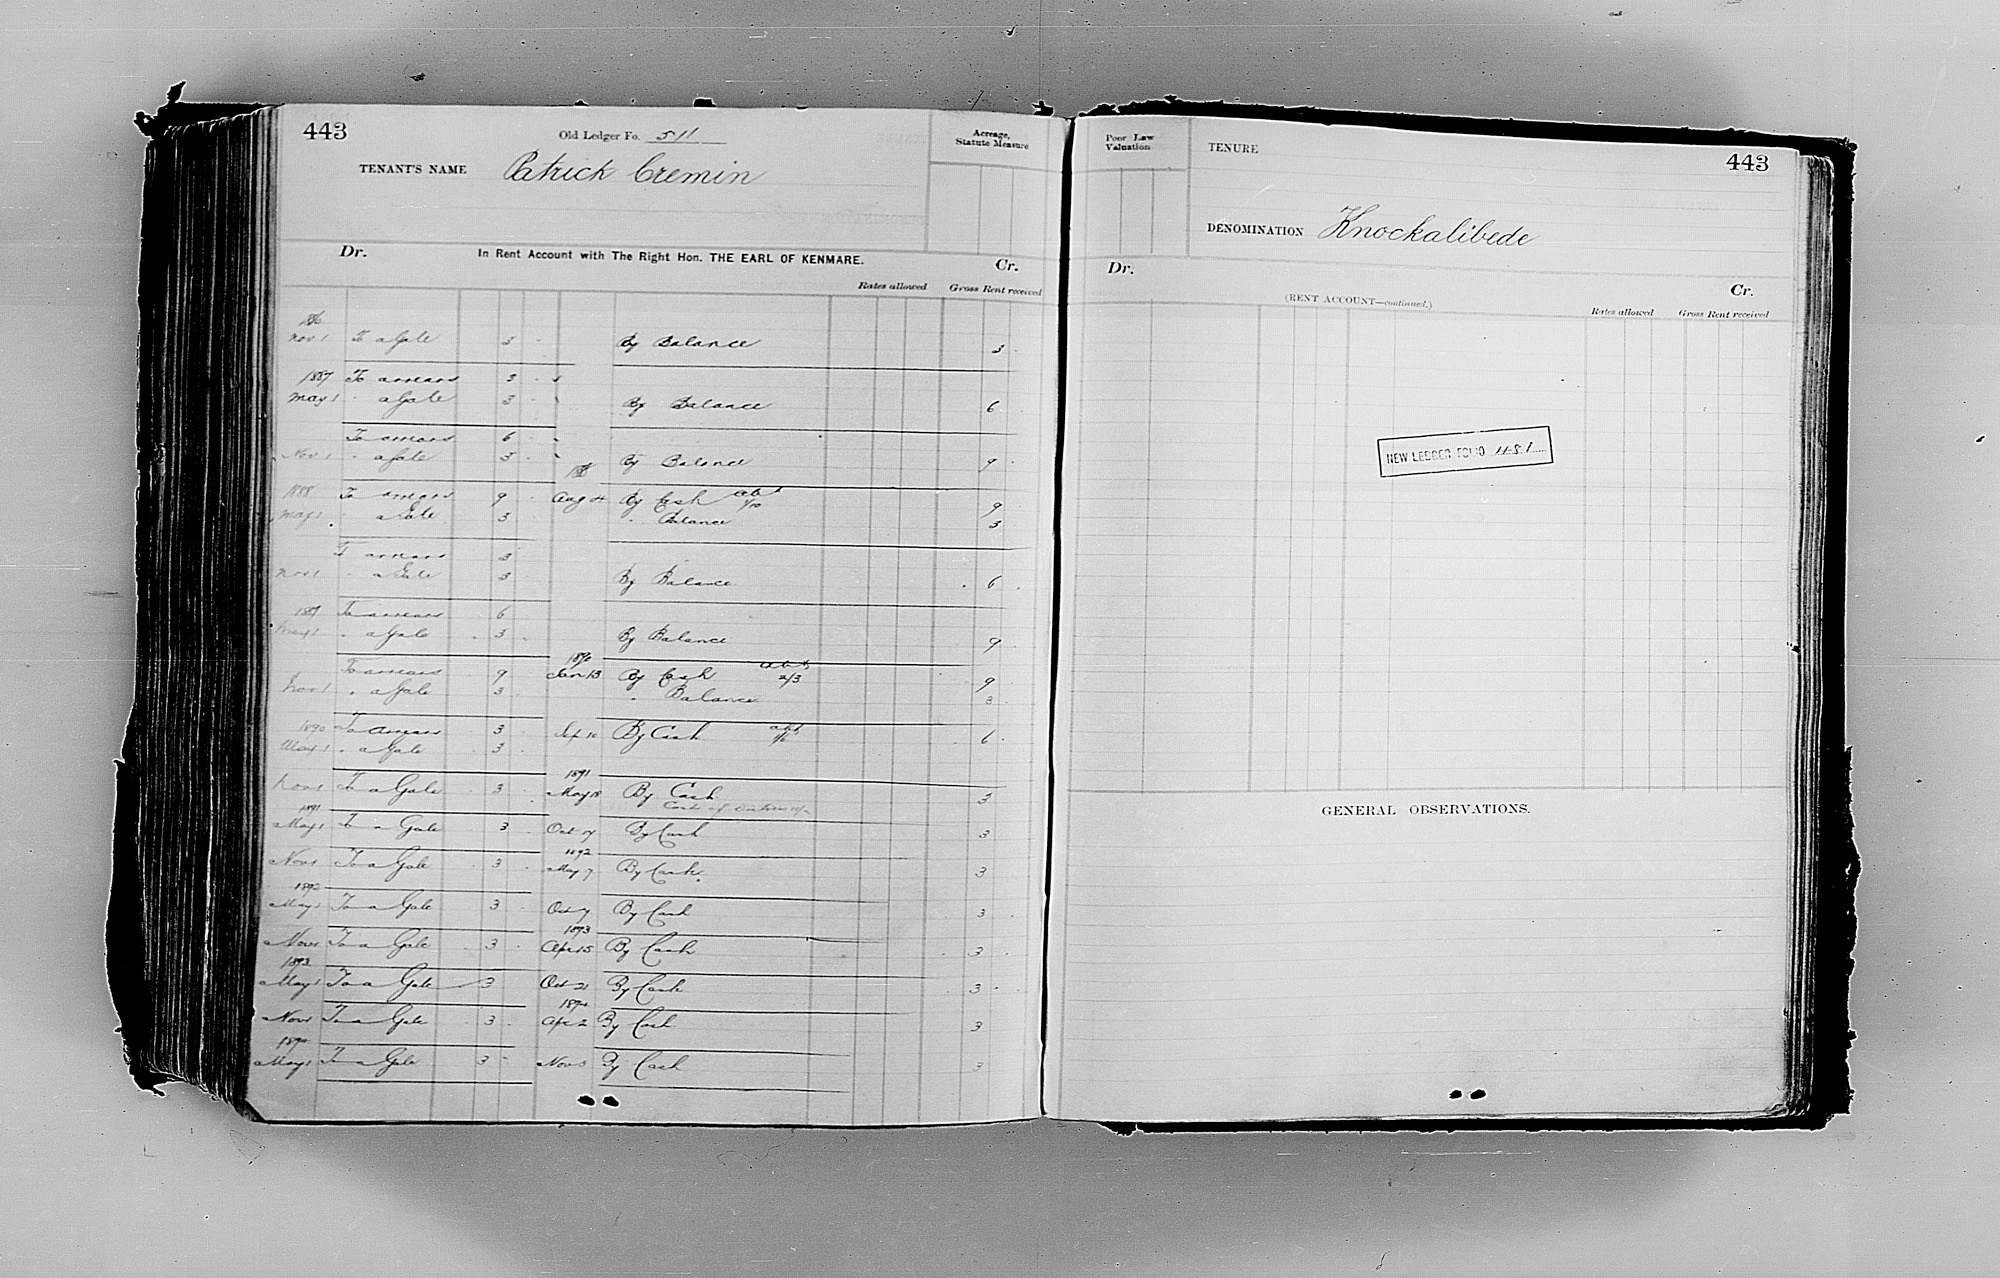 443
Old Ledger Fo. 511
TENANT'S NAME Patrick Cremin
Acreage, Statute Measure
Dr. In Rent Account with The Right Hon. THE EARL OF KENMARE. Cr.
Rates allowed Gross Rent received
Nov 1 To a Gale 3 By Balance 3
1887 To arrears 3
May 1 " a Gale 3 By Balance 6
To arrears 6
Nov 1 " a Gale 3 By Balance 9
1888 To arrears 9 Aug 4 By Cash abt 1/10 9
May 1 a Gale 3 " Balance 3
To arrears 3
Nov 1 " a Gale 3 By Balance 6
To arrears 6
May 1 " a Gale 3 By Balance 9
1890
To arrears 9 Jan 13 By Cash abt 2/3 9
Nov 1 " a Gale 3 " Balance 3
1890 To Arrears 3 Sep 10 By Cash abt 6
May 1 " a Gale 3
1891
Nov 1 To a Gale 3 May 18 By Cash 3
1891
May 1 To a Gale 3 Oct 17 By Cash 3
1892
Nov 1 To a Gale 3 May 7 By Cash 3
1892
May 1 To a Gale 3 Oct 7 By Cash 3
1893
Nov 1 To a Gale 3 Apr 15 By Cash 3
1893
May 1 To a Gale 3 Oct 21 By Cash 3
1894
Nov 1 To a Gale 3 Apr 2 By Cash 3
1894
May 1 To a Gale 3 Nov 3 By Cash 3
Poor Law Valuation
TENURE
443
DENOMINATION Knockalibede
Dr. (RENT ACCOUNT—continued.) Cr.
Rates allowed Gross Rent received
NEW LEDGER FOLIO
GENERAL OBSERVATIONS.